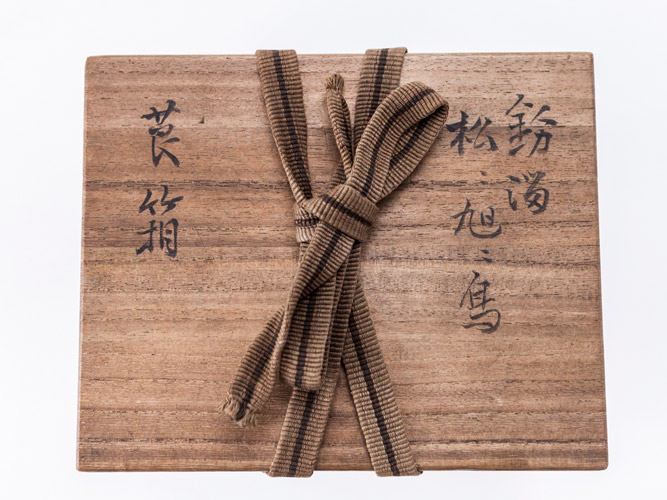 鈖溜
松ニ旭ニ鳥
莨箱